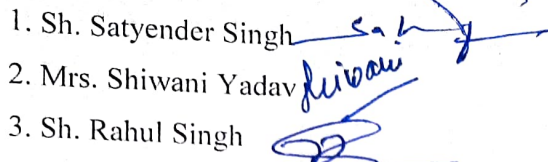 1. Sh. Satyender Singh
2. Mrs. Shiwani Yadav Shiwani
3. Sh. Rahul Singh